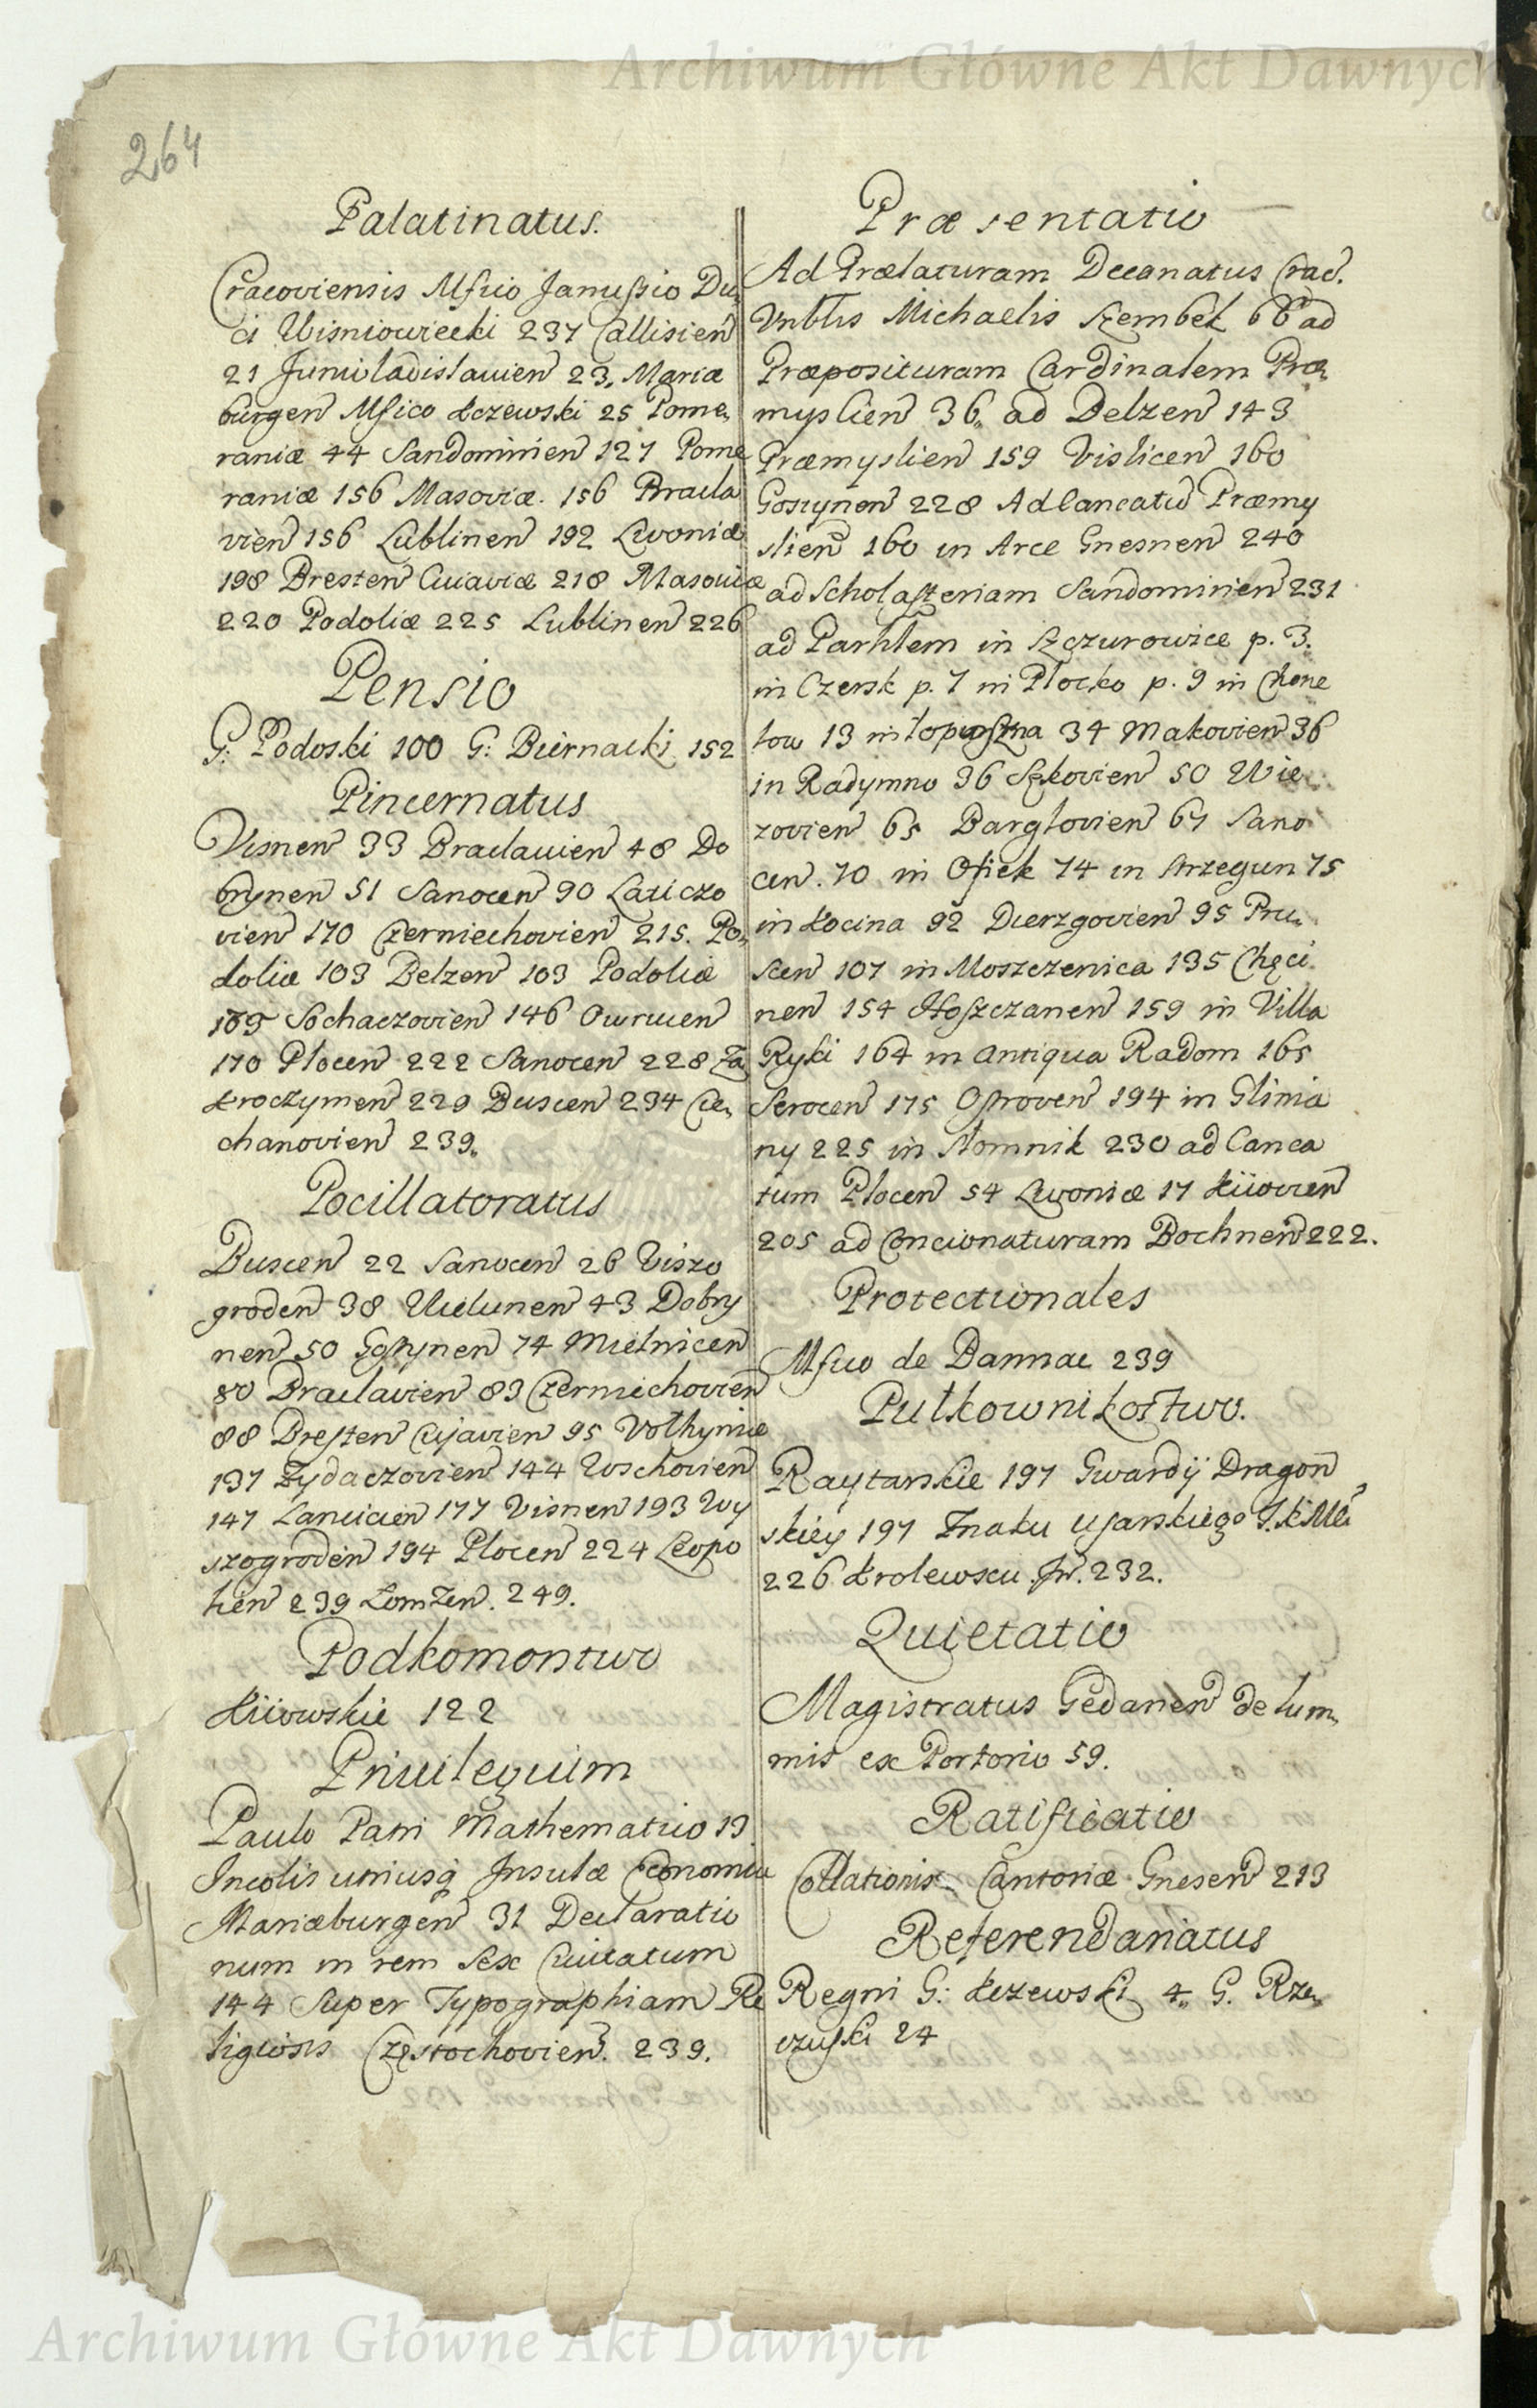 Archiwum Główne Akt Dawnych
264
Palatinatus.
Cracoviensis Mfico Janussio Du„
ci Wisniowiecki 237 Callisień
21 Juniuladislauień 23„ Mariæ
burgeń Mfico Łczewski 25 Pome„
raniæ 44 Sandomirień 127 Pome
raniæ 156 Masoviæ. 156 Bracla
vień 156 Lublineń 192 Livoniæ
198 Bresteń Cuiaviæ 218 Masoviæ
220 Podoliæ 225 Lublineń 226
Pensio
G: Podoski 100 G: Biernacki 152
Pincernatus
Visneń 33 Braclavień 48 Do
bryneń 51 Sanoceń 90 Laticzo
vień 170 Czerniechovień 215. Po„
doliæ 103 Belzeń 103 Podoliæ
109 Sochaczovień 146 Owruceń
170 Ploceń 222 Sanoceń 228 Za
kroczymeń 229 Busceń 234 Cie„
chanovień 239„
Pocillatoratus
Busceń 22 Sanoceń 26 Viszo
grodeń 38 Vieluneń 43 Dobry
neń 50 Gostyneń 74 Mielniceń
80 Braclavień 83 Czerniechovień
88 Bresteń Cujavień 95 Volhyniæ
137 Zydaczovień 144 Wschovień
147 Lancicień 177 Visneń 193 Wy
szogrodeń 194 Ploceń 224 Leopo
lień 239 Łomżeń. 249.
Podkomorstwo
Kiiowskie 122
Priuilegium
Paulo Patri Mathematico 13
Incolis uriusq Insulæ Economiæ
Mariæburgeń 31 Declaratio
num in rem Sex Ciuitatum
144 Super Typographiam Re
ligiosis Częstochovień. 239.
Præsentatio
Ad Prælaturam Decanatus Crac̃.
Vnblis Michaelis Szembek 66 ad
Præposituram Cardinalem Præ„
myslień 36„ ad Belzeń 143
Præmyslień 159 Visliceń 160
Gostyneń 228 Ad Cancatū Præmy
slień 160 in Arce Gnesneń 240
ad Scholasteriam Sandomirień 231
ad Parhlem in Szczurowice p. 3.
in Czersk p. 7 in Płocko p. 9 in Chme
low 13 in Łopuszna 34 Makovień 36
in Radymno 36 Szkovień 50 Wie„
zovień 65 Barglovień 67 Sano
ceń. 70 in Osiek 74 in Strzegun 75
in Łocina 92 Dzierzgovień 95 Pru„
sceń 107 in Moszczenica 135 Chęci
neń 154 Hoszczaneń 159 in Villa
Ryki 164 in antiqua Radom 165
Seroceń 175 Ostroveń 194 in Glinia
ny 225 in Słomnik 230 ad Canca
tum Ploceń 54 Livoniæ 17 Kiiovień
205 ad Concionaturam Bochneń 222.
Protectionales
Mfico de Dannac 239
Pułkownikostwo.
Raytarskie 197 Gwardij Dragoń
skiey 197 Znaku Usarskiego J.K.Mci
226 Krolewscu Jr. 232.
Quietatio
Magistratus Gedaneń de lum„
mis ex Portorio 59.
Ratificatio
Collationis Cantoriæ Gneseń 213
Referendariatus
Regni G: Łczewski 4„ G. Rze„
czuski 24
Archiwum Główne Akt Dawnych